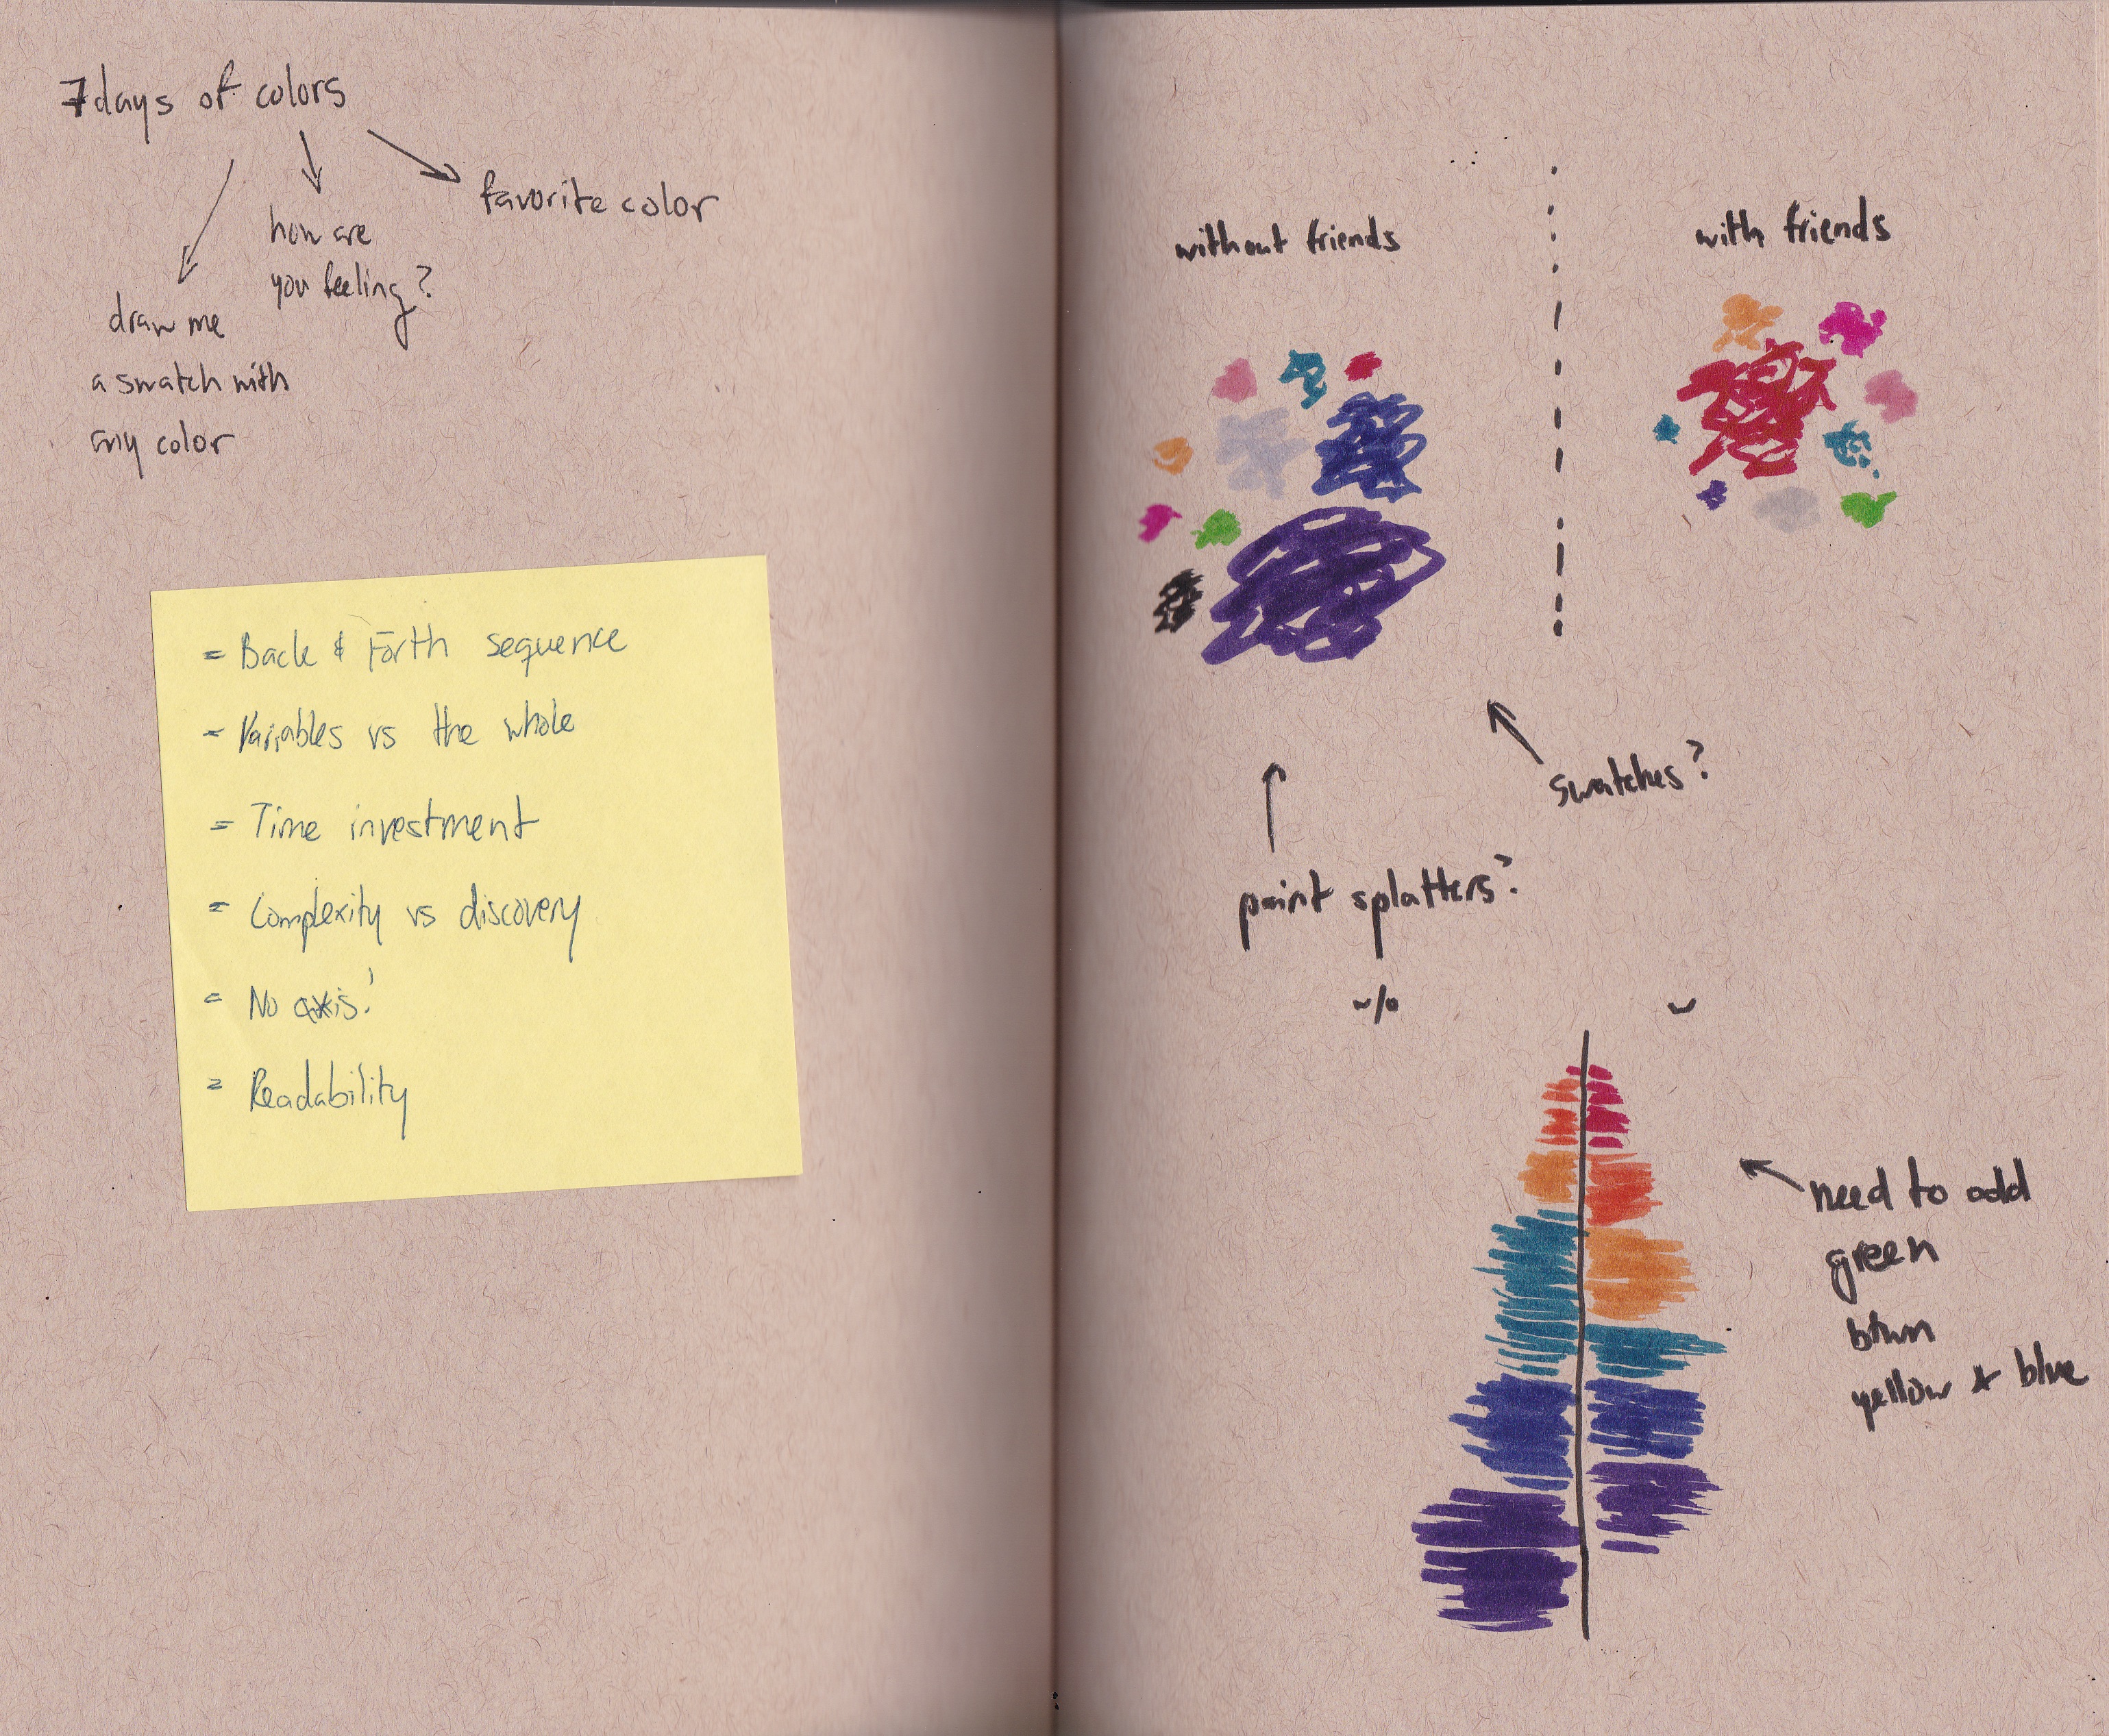 7 days of colors
favorite color
how are
you feeling?
draw me
a swatch with
any color
= Back & Forth sequence
= Variables vs the whole
= Time investment
= Complexity vs discovery
= No axis!
= Readability
without friends
with friends
swatches?
paint splatters?
w/o
w
need to add
green
btwn
yellow & blue